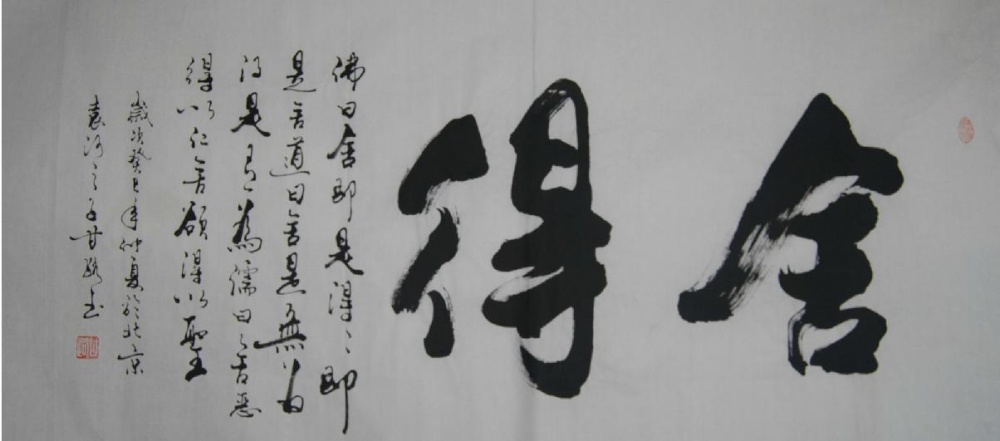 舍得
佛曰舍即是得〻即
是舍道曰舍是無为
得是有為儒曰舍惡
得以仁舍欲得以聖
歲次癸巳年仲夏於北京
袁河之子甘书